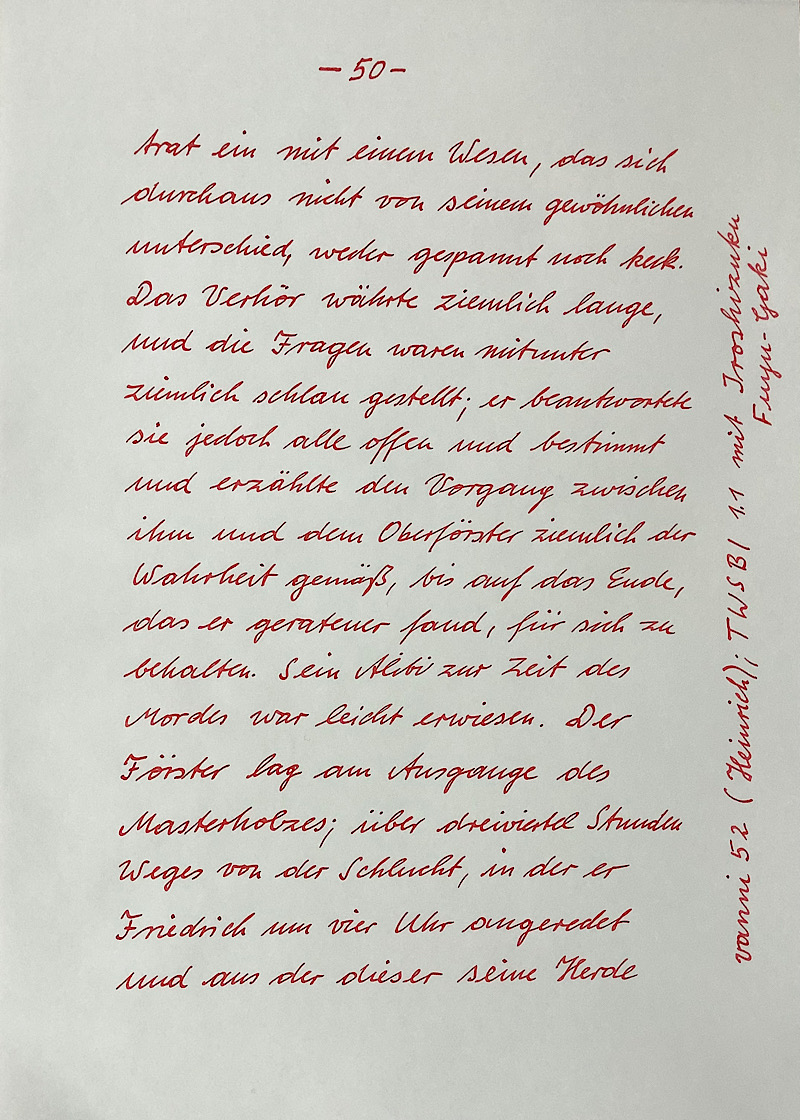 — 50 —
trat ein mit einem Wesen, das sich
durchaus nicht von seinem gewöhnlichen
unterschied, weder gespannt noch keck.
Das Verhör währte ziemlich lange,
und die Fragen waren mitunter
ziemlich schlau gestellt; er beantwortete
sie jedoch alle offen und bestimmt
und erzählte den Vorgang zwischen
ihm und dem Oberförster ziemlich der
Wahrheit gemäß, bis auf das Ende,
das er geratener fand, für sich zu
behalten. Sein Alibi zur Zeit des
Mordes war leicht erwiesen. Der
Förster lag am Ausgange des
Masterholzes; über dreiviertel Stunden
Weges von der Schlucht, in der er
Friedrich um vier Uhr angeredet
und aus der dieser seine Herde
vanni 52 (Heinrich); TWSBI 1.1 mit Iroshizuku
Fuyu-Gaki